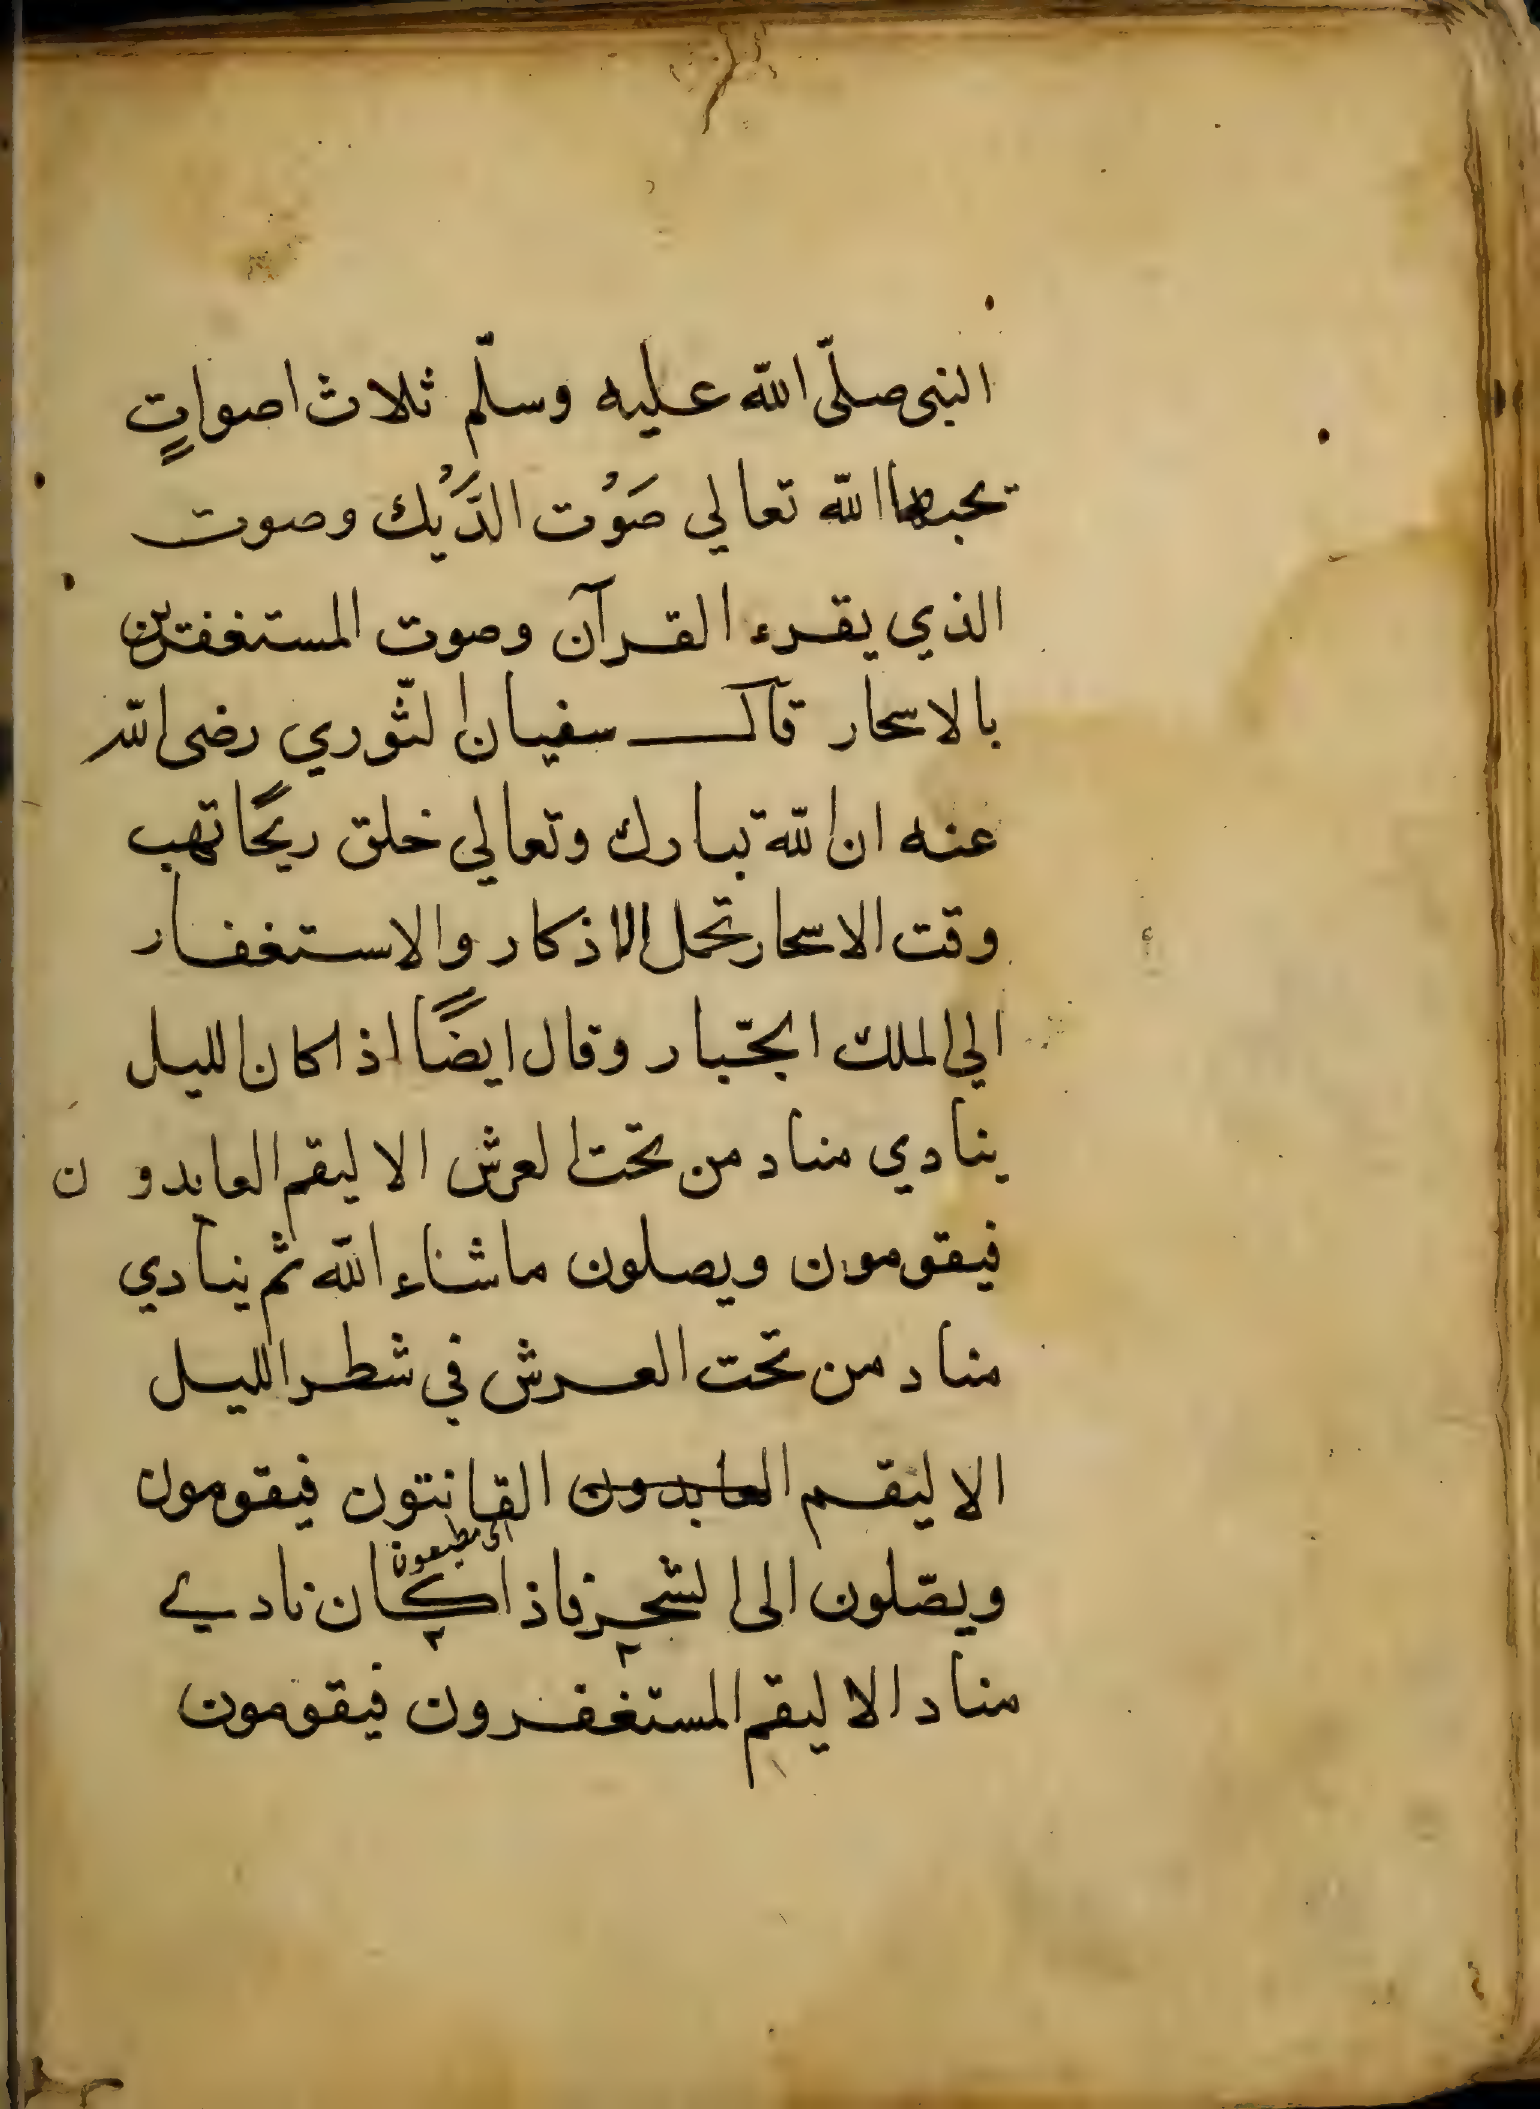 النبى صلّى الله عليه وسلّم ثلاث اصواتٍ
يحبها الله تعالي صَوْت الدَّيْك وصوت
الذي يقرء القرآن وصوت المستغفرين
بالاسحار قال سفيان الثّوري رضى الله
عنه ان الله تبارك وتعالي خلق ريحًا تهب
وقت الاسحار تحمل الاذكار والاستغفار
الي الملك الجبّار وقال ايضًا اذا كان الليل
ينادي مناد من تحت العرش الا ليقم العابدون
فيقومون ويصلون ماشاء الله ثم ينادي
مناد من تحت العرش في شطر الليل
الا ليقم العابدون القانتون فيقومون
اى مطيعون
ويصّلون الى السحر فاذا كان نادي
مناد الا ليقم المستغفرون فيقومون